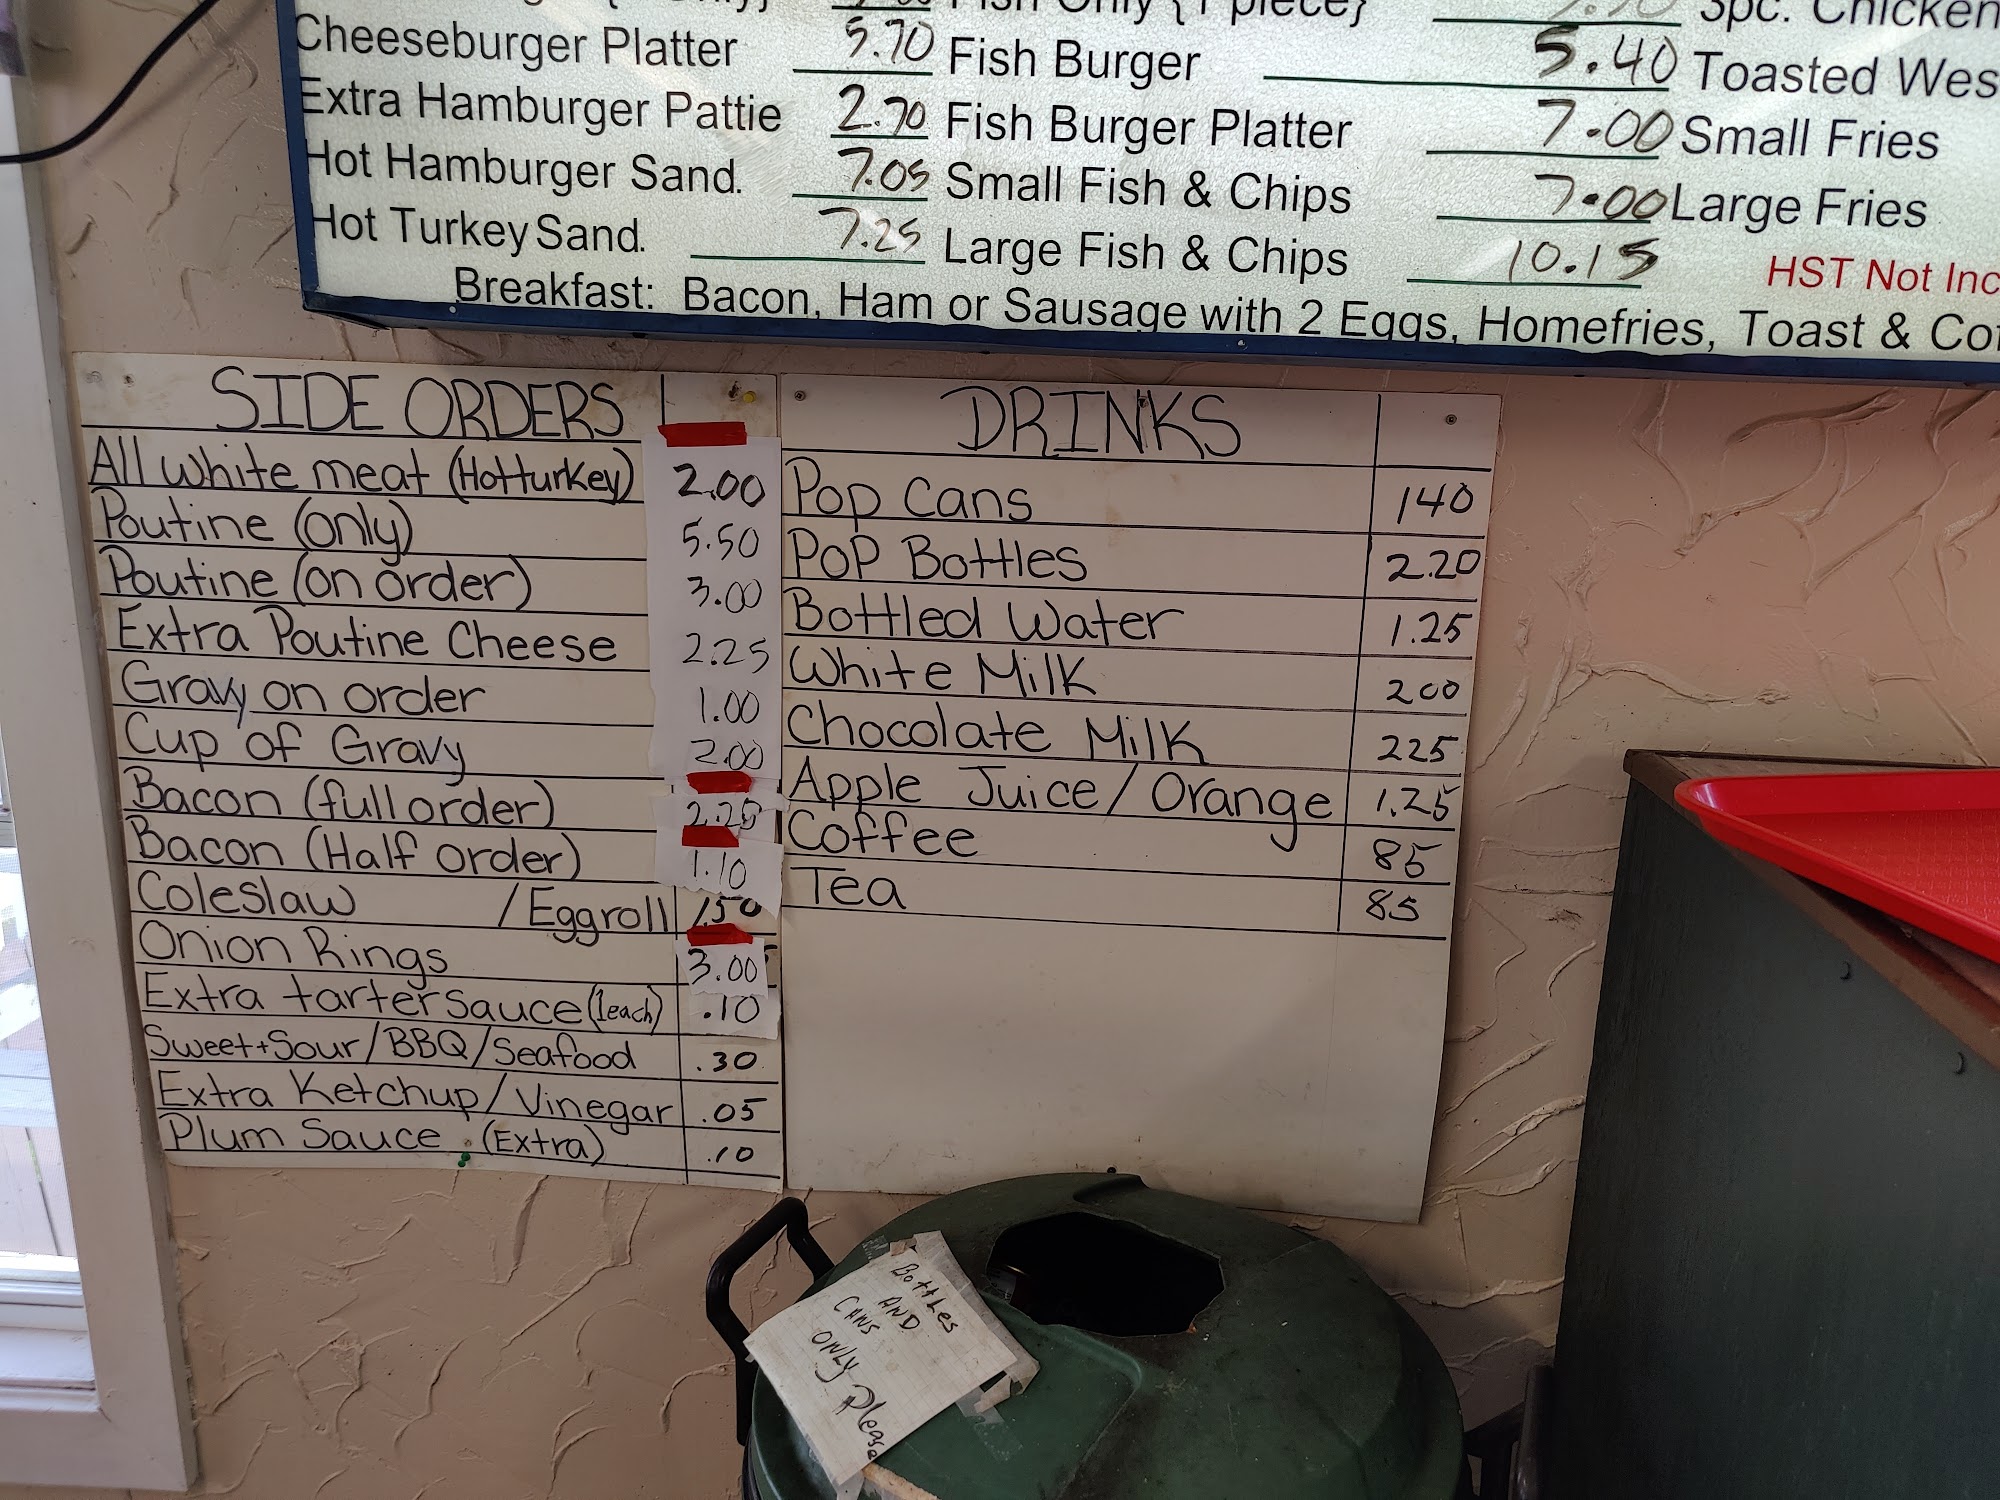 Fish Only {1 piece}
3pc. Chicken
Cheeseburger Platter 5.70 Fish Burger 5.40 Toasted Wes
Extra Hamburger Pattie 2.70 Fish Burger Platter 7.00 Small Fries
Hot Hamburger Sand. 7.05 Small Fish & Chips 7.00 Large Fries
Hot Turkey Sand. 7.25 Large Fish & Chips 10.15 HST Not Inc
Breakfast: Bacon, Ham or Sausage with 2 Eggs, Homefries, Toast & Cof
SIDE ORDERS
All white meat (Hot turkey) 2.00
Poutine (only) 5.50
Poutine (on order) 3.00
Extra Poutine Cheese 2.25
Gravy on order 1.00
Cup of Gravy 2.00
Bacon (full order) 2.25
Bacon (Half order) 1.10
Coleslaw / Eggroll 1.50
Onion Rings 3.00
Extra tarter sauce (1 each) .10
Sweet + Sour / BBQ / Seafood .30
Extra Ketchup / Vinegar .05
Plum Sauce (Extra) .10
DRINKS
Pop Cans 140
PoP Bottles 2.20
Bottled Water 1.25
White Milk 200
Chocolate Milk 225
Apple Juice / Orange 1.25
Coffee 85
Tea 85
Bottles
AND
CANS
ONLY
Please